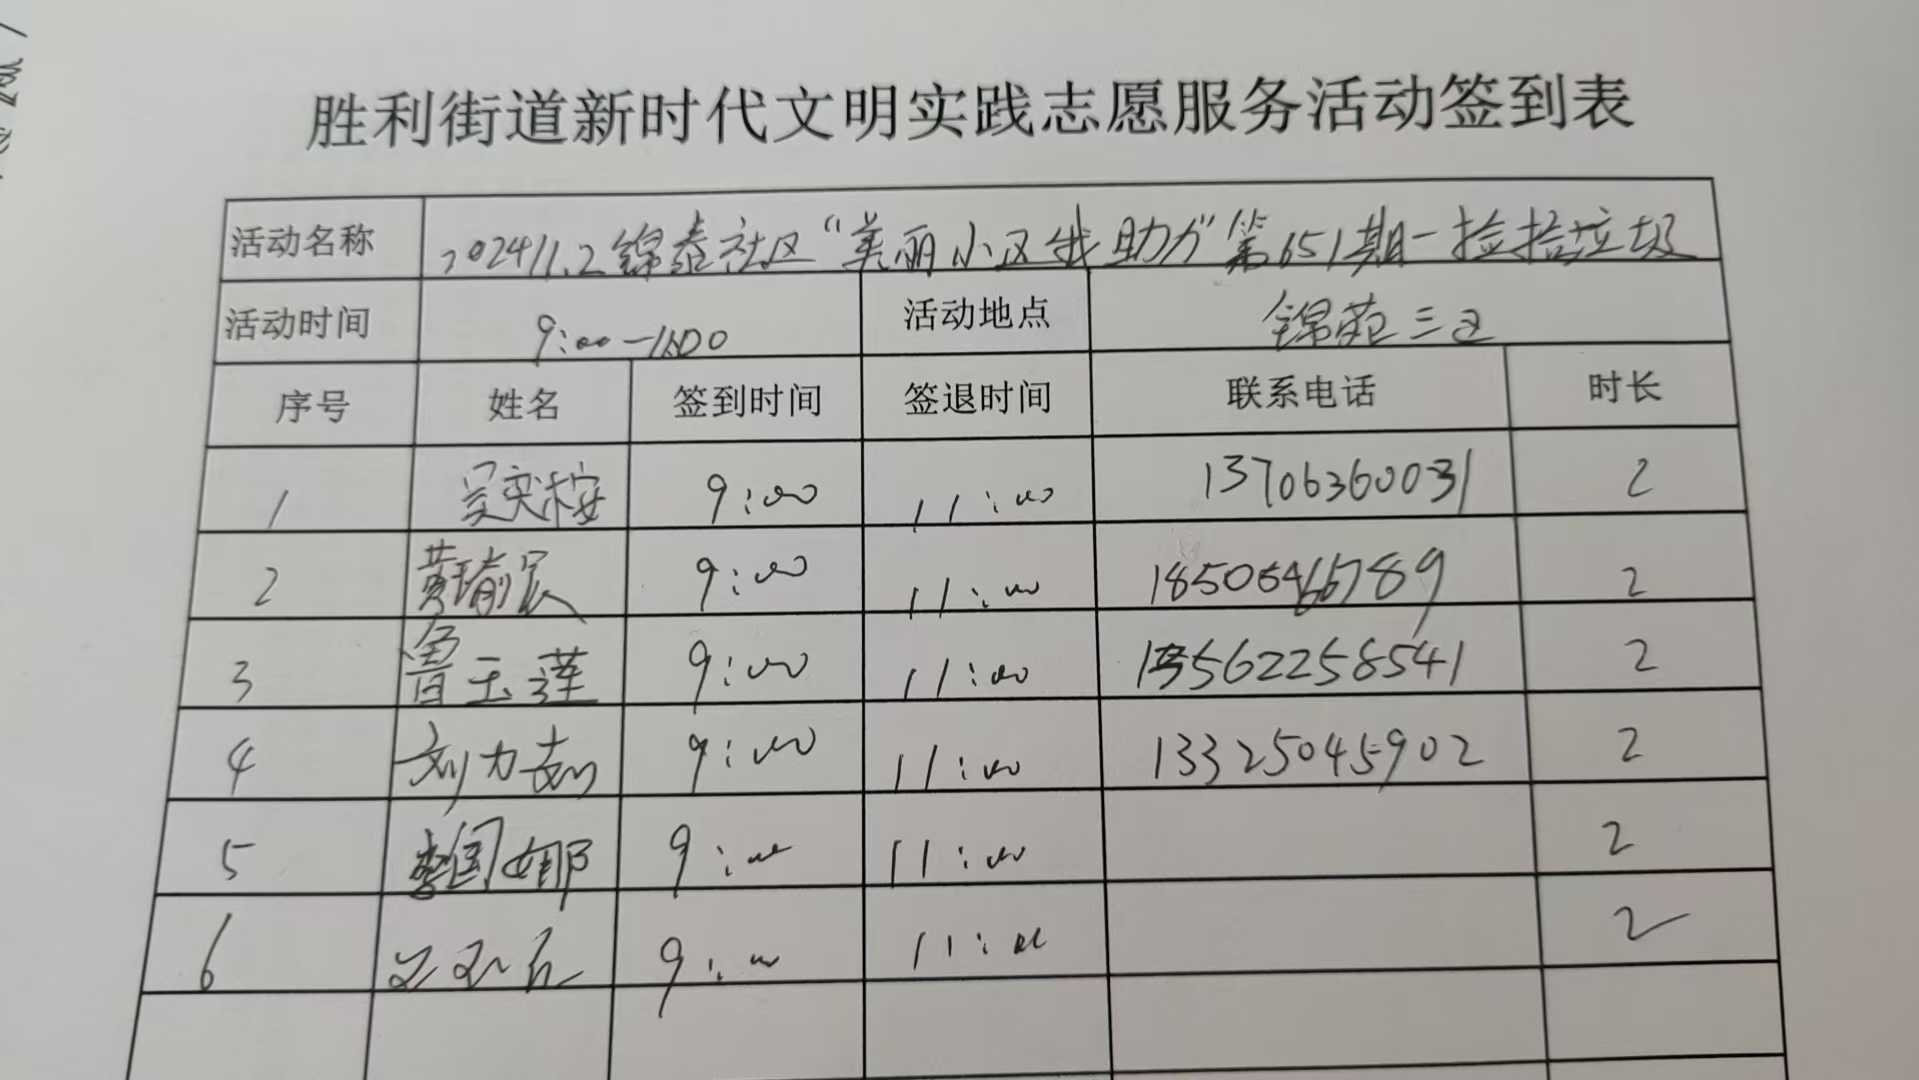 胜利街道新时代文明实践志愿服务活动签到表
活动名称 2024.11.2锦泰社区“美丽小区我助力”第651期-捡拾垃圾
活动时间 9:00-11:00 活动地点 锦苑三区
序号 姓名 签到时间 签退时间 联系电话 时长
1 9:00 11:00 13706360031 2
2 黄瑜民 9:00 11:00 18506466789 2
3 鲁玉莲 9:00 11:00 13562258541 2
4 刘力 9:00 11:00 13325045902 2
5 李国娜 9:00 11:00 2
6 9:00 11:00 2